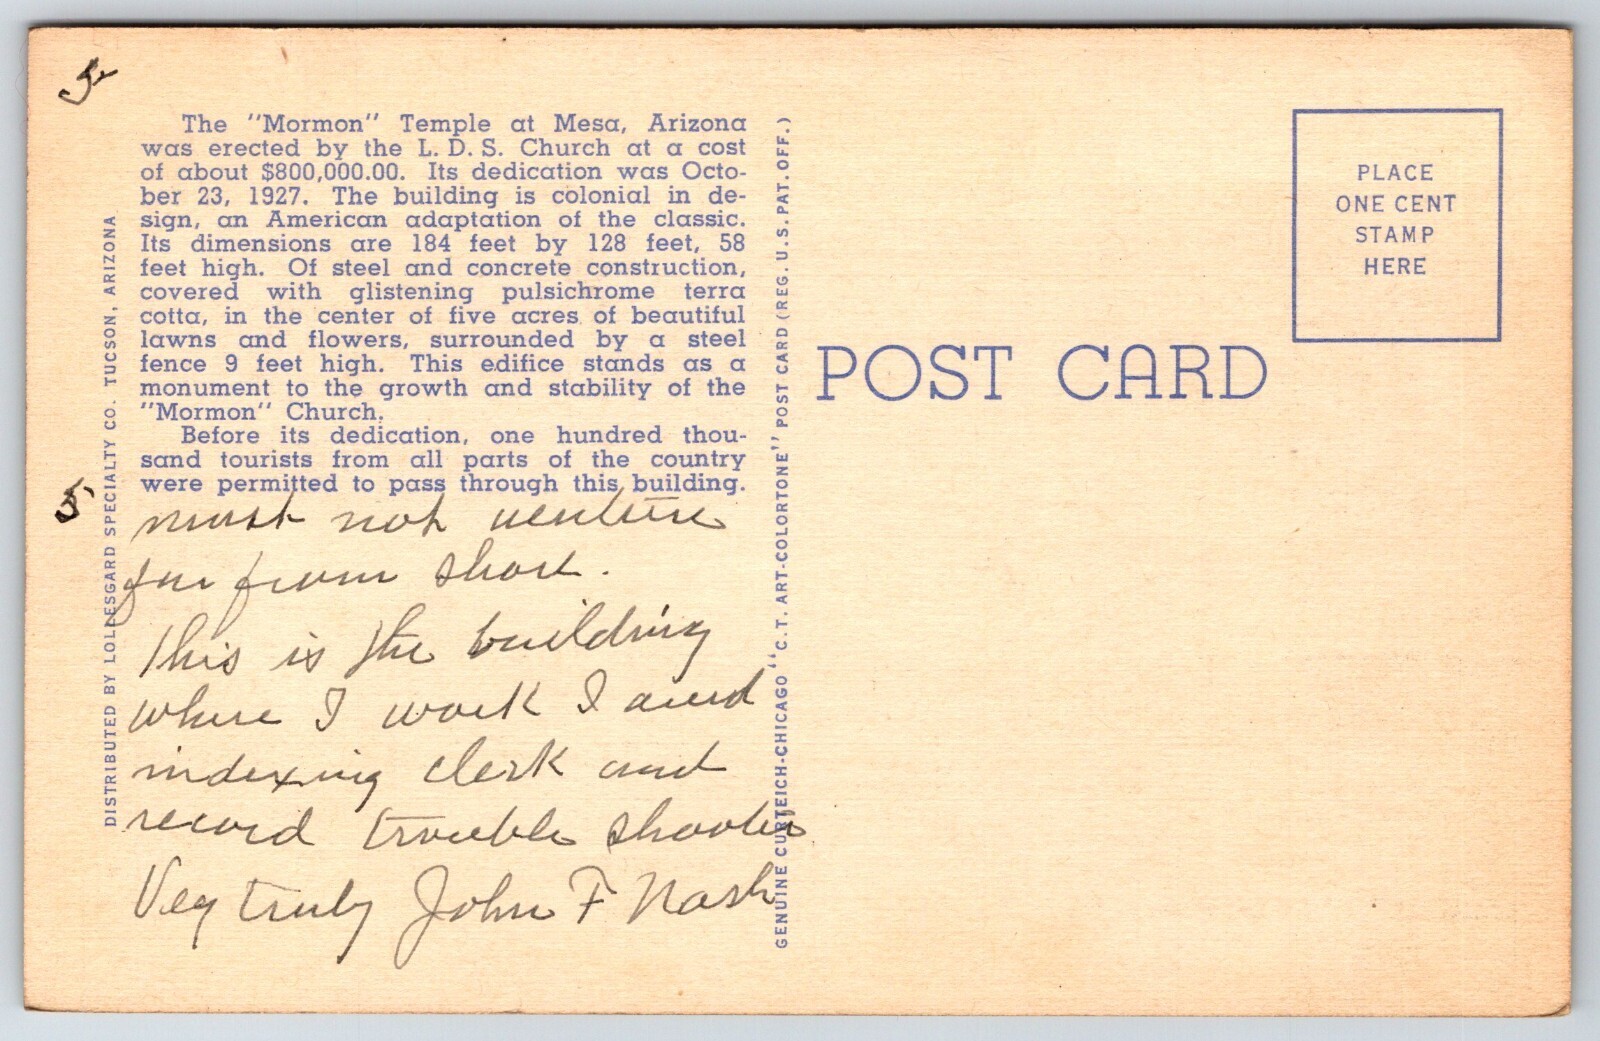 The "Mormon" Temple at Mesa, Arizona
was erected by the L. D. S. Church at a cost
of about $800,000.00. Its dedication was Octo-
ber 23, 1927. The building is colonial in de-
sign, an American adaptation of the classic.
Its dimensions are 184 feet by 128 feet, 58
feet high. Of steel and concrete construction,
covered with glistening pulsichrome terra
cotta, in the center of five acres of beautiful
lawns and flowers, surrounded by a steel
fence 9 feet high. This edifice stands as a
monument to the growth and stability of the
"Mormon" Church.
Before its dedication, one hundred thou-
sand tourists from all parts of the country
were permitted to pass through this building.
5
must not venture
far from shore.
This is the building
where I work I
indexing clerk and
record trouble shooter
Very truly John F Nash
DISTRIBUTED BY LOLLESGARD SPECIALTY CO. TUCSON, ARIZONA
GENUINE CURTEICH-CHICAGO "C.T. ART-COLORTONE" POST CARD (REG. U.S. PAT. OFF.)
POST CARD
PLACE
ONE CENT
STAMP
HERE